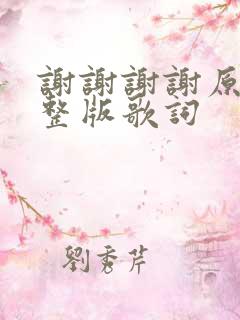 謝謝謝謝原
整版歌詞
劉秀芹